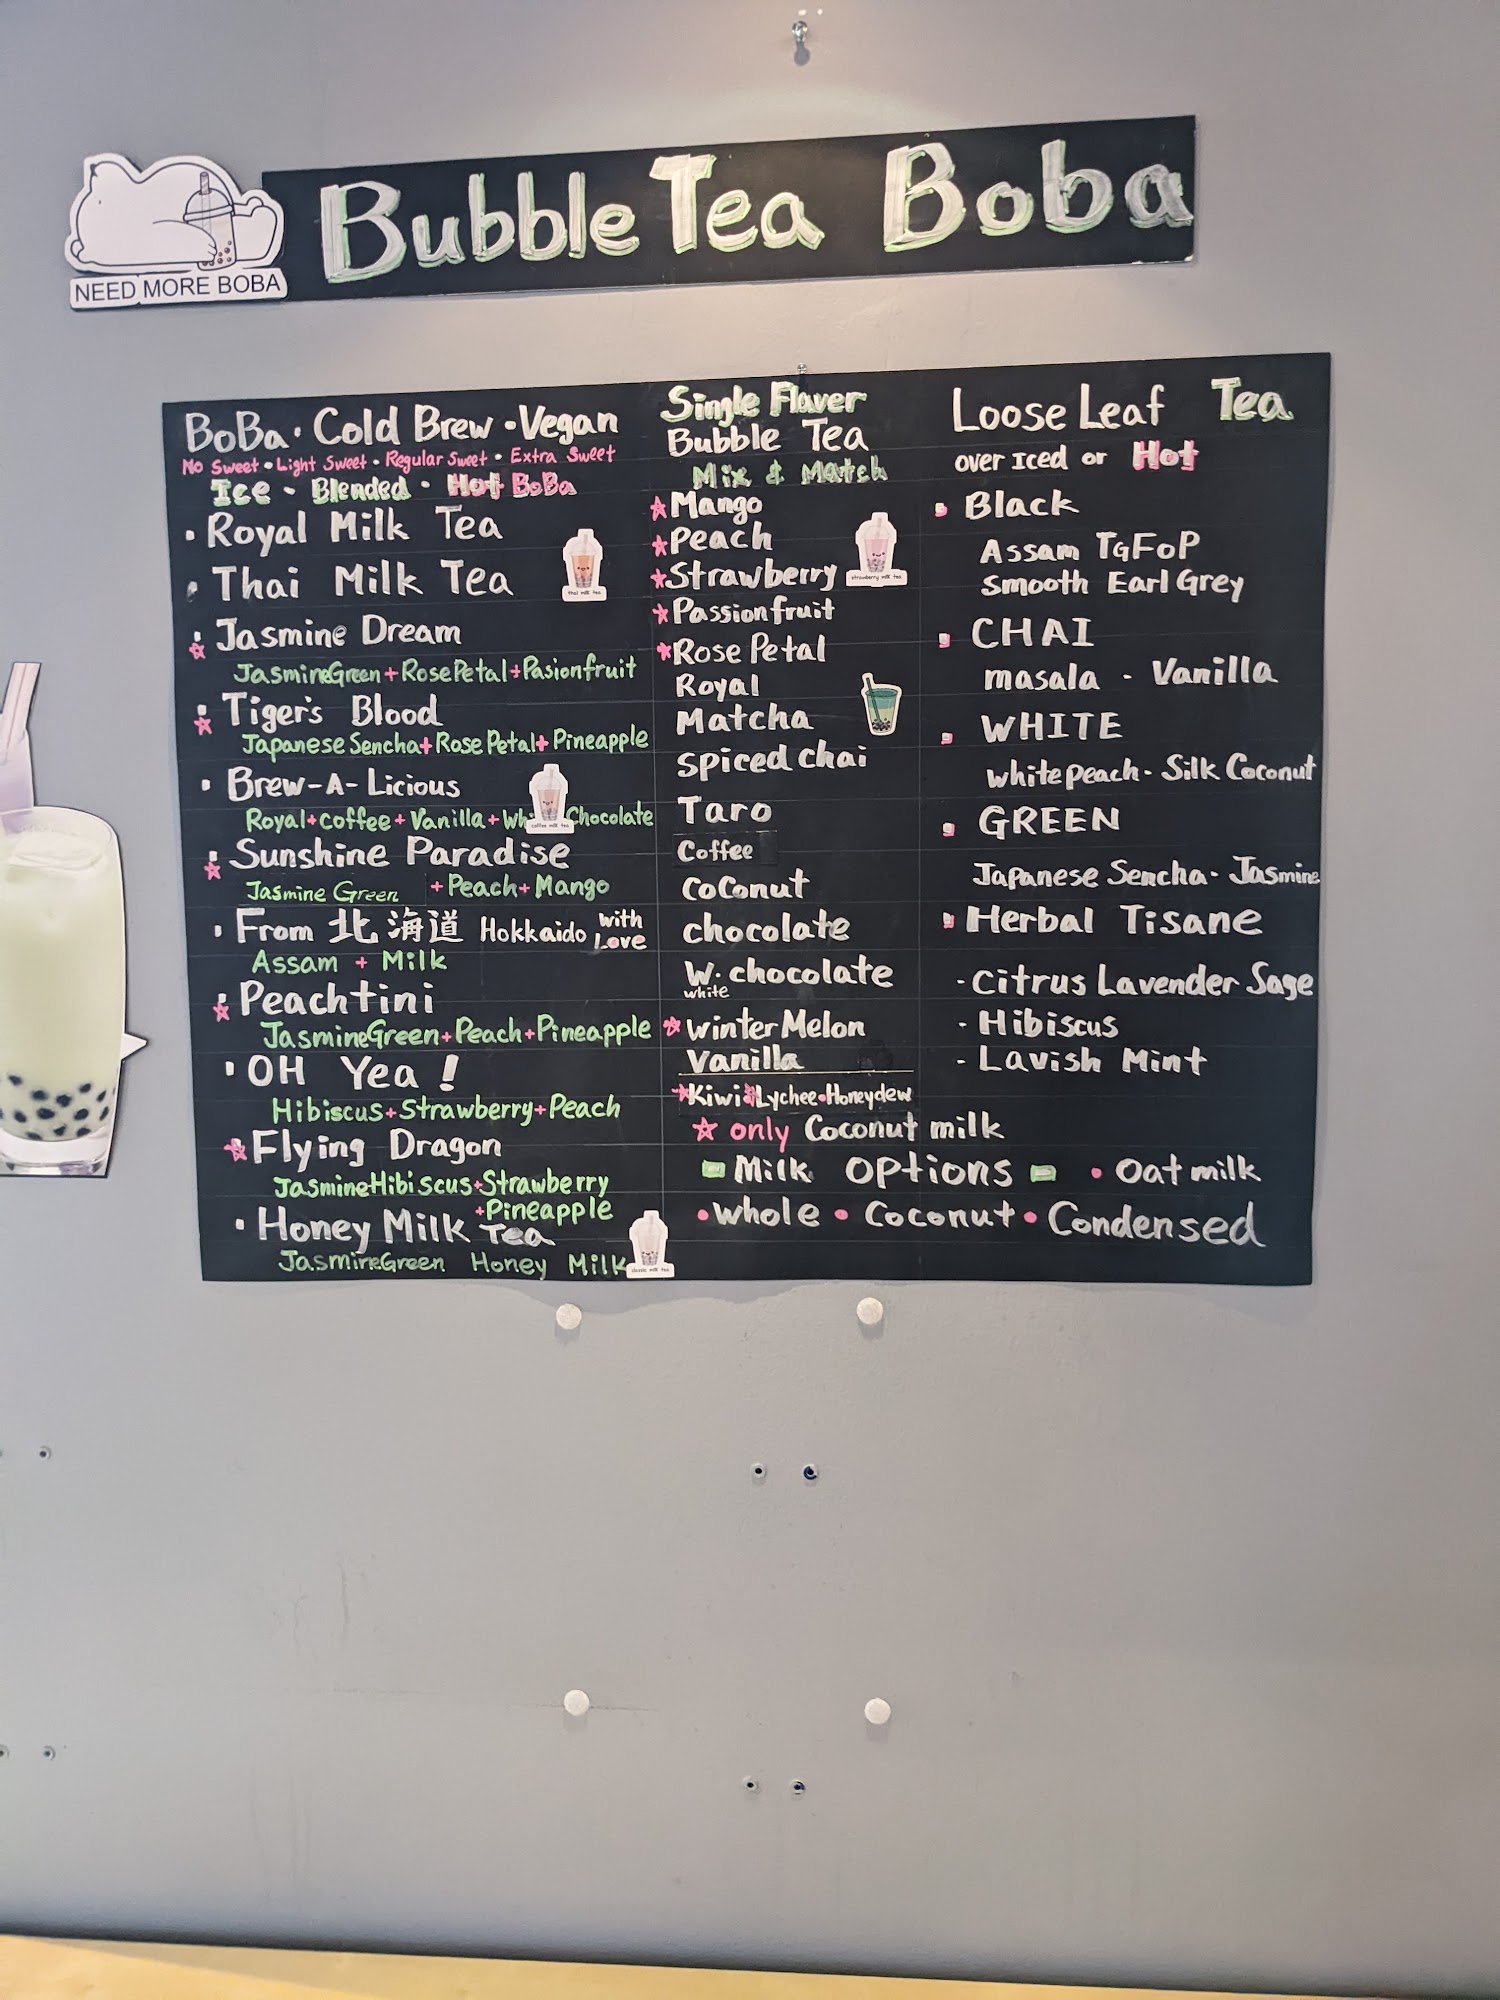 Bubble Tea Boba
NEED MORE BOBA
BoBa · Cold Brew · Vegan
No Sweet • Light Sweet • Regular Sweet • Extra Sweet
Ice - Blended - Hot BoBa
· Royal Milk Tea
thai milk tea
· Thai Milk Tea
· Jasmine Dream
JasmineGreen + Rose Petal + Pasionfruit
· Tiger's Blood
Japanese Sencha + Rose Petal + Pineapple
· Brew-A-Licious
Royal + coffee + Vanilla + Wh Chocolate
coffee milk tea
· Sunshine Paradise
Jasmine Green + Peach + Mango
· From 北海道 Hokkaido with Love
Assam + Milk
· Peachtini
JasmineGreen + Peach + Pineapple
· OH Yea!
Hibiscus + Strawberry + Peach
☆ Flying Dragon
JasmineHibiscus + Strawberry
+ Pineapple
· Honey Milk Tea
JasmineGreen Honey Milk
classic milk tea
Single Flaver
Bubble Tea
Mix & Match
☆ Mango
☆ Peach
☆ Strawberry
strawberry milk tea
☆ Passionfruit
☆ Rose Petal
Royal
Matcha
Spiced chai
Taro
Coffee
Coconut
chocolate
W. chocolate
white
☆ winter Melon
Vanilla
☆ Kiwi ☆ Lychee • Honeydew
☆ only Coconut milk
Milk options • Oat milk
• whole • Coconut • Condensed
Loose Leaf Tea
over Iced or Hot
Black
Assam TGFOP
Smooth Earl Grey
CHAI
masala - Vanilla
WHITE
white peach - Silk Coconut
GREEN
Japanese Sencha · Jasmine
Herbal Tisane
- Citrus Lavender Sage
- Hibiscus
- Lavish Mint